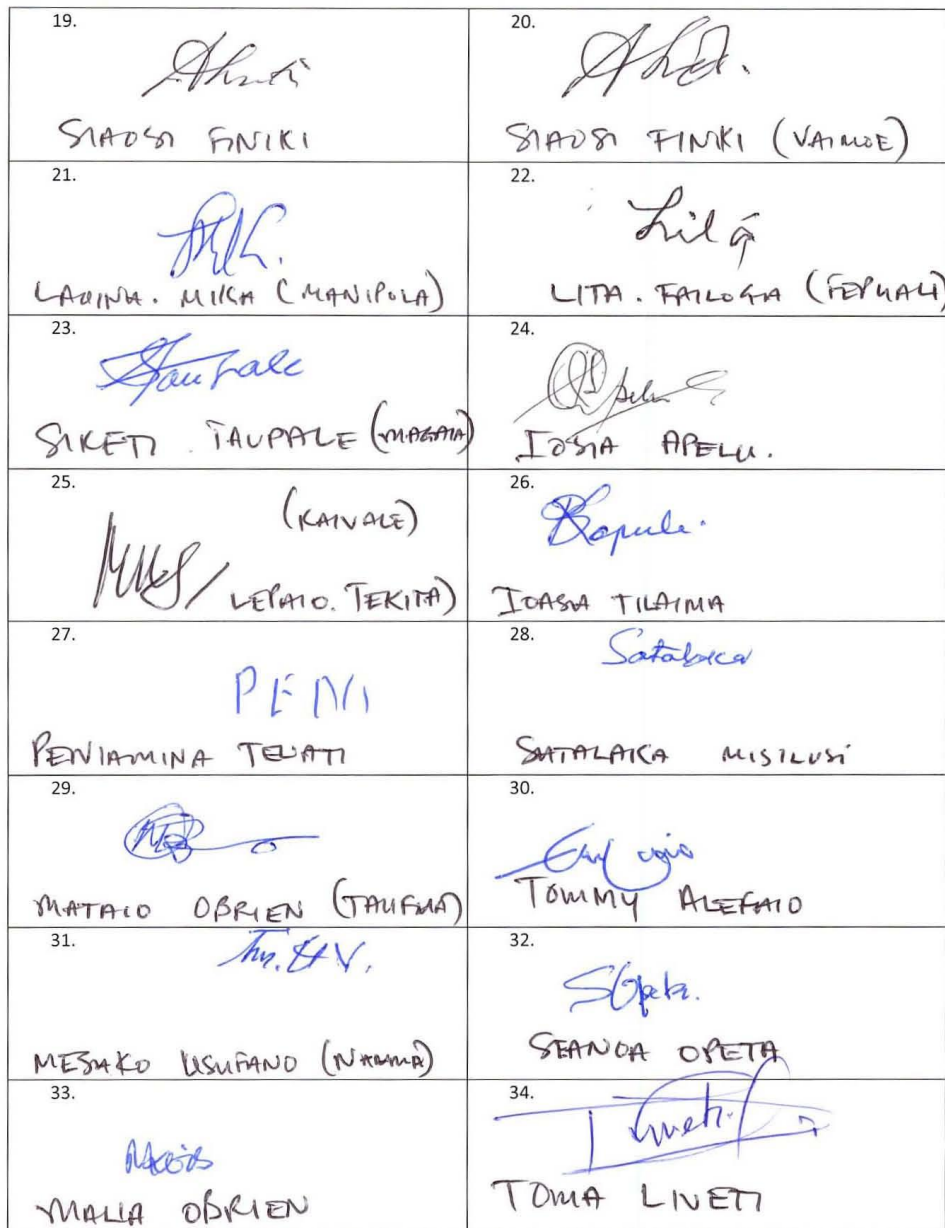 19.
SIAOSI FINIKI
20.
SIAOSI FINIKI (VAIMOE)
21.
LAQINA. MIKA (MANIPULA)
22.
Lita
LITA. FAILOGA (FEPUALI)
23.
Taupale
SIKETI TAUPALE (MAGAIA)
24.
Apelu
IOSIA APELU.
25.
(KAIVALE)
LEPAIO. TEKITA)
26.
IOASA TILAIMA
27.
PENI
PENIAMINA TEUATI
28.
Satalaka
SATALAKA MISILUSI
29.
MATAIO OBRIEN (TAUFUA)
30.
TOMMY ALEFAIO
31.
MESAKO USUFANO (NAMUA)
32.
SOpeta.
SEANOA OPETA
33.
MALIA OBRIEN
34.
TOMA LIVETI